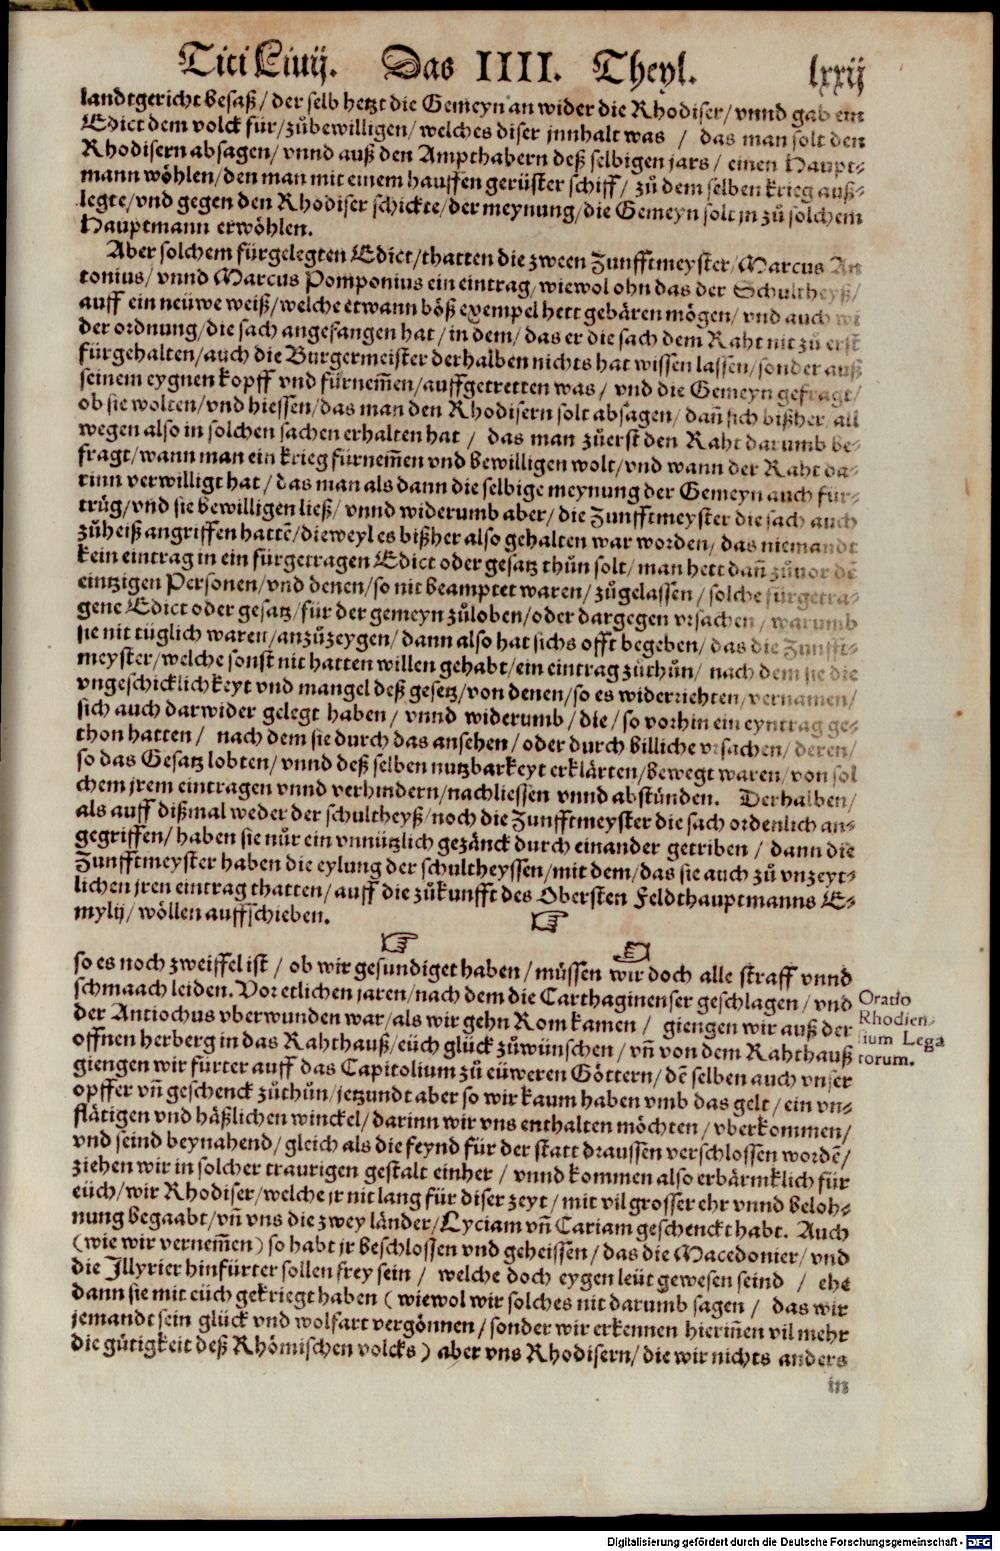 Titi Liuij. Das IIII. Theyl. lxxij
landtgericht besaß/ der selb hetzt die Gemeyn an wider die Rhodiser/ vnnd gab ein
Edict dem volck für/ zůbewilligen/ welches diser jnnhalt was / das man solt den
Rhodisern absagen/ vnnd auß den Ampthabern deß selbigen jars/ einen Haupt⸗
mann wöhlen/ den man mit einem hauffen gerüster schiff/ zů dem selben krieg auß⸗
legte/ vnd gegen den Rhodiser schickte/ der meynung/ die Gemeyn solt jn zů solchem
Hauptmann erwöhlen.
Aber solchem fürgelegten Edict/ thatten die zween Zunfftmeyster/ Marcus An
tonius/ vnnd Marcus Pomponius ein eintrag/ wiewol ohn das der Schultheyß/
auff ein neüwe weiß/ welche etwann böß exempel hett gebären mögen/ vnd auch wi
der ordnung/ die sach angefangen hat/ in dem/ das er die sach dem Raht nit zů erst
fürgehalten/ auch die Burgermeister derhalben nichts hat wissen lassen/ sonder auß
seinem eygnen kopff vnd fürnem̃en/ auffgetretten was/ vnd die Gemeyn gefragt/
ob sie wolten/ vnd hiessen/ das man den Rhodisern solt absagen/ dañ sich bißher/ all
wegen also in solchen sachen erhalten hat / das man zůerst den Raht darumb be⸗
fragt/ wann man ein krieg fürnem̃en vnd bewilligen wolt/ vnd wann der Raht da⸗
rinn verwilligt hat/ das man als dann die selbige meynung der Gemeyn auch für⸗
trüg/ vnd sie bewilligen ließ/ vnnd widerumb aber/ die Zunfftmeyster die sach auch
zůheiß angriffen hattẽ/ dieweyl es bißher also gehalten war worden/ das niemandt
kein eintrag in ein fürgetragen Edict oder gesatz thůn solt/ man hett dañ zůuor dẽ
eintzigen Personen/ vnd denen/ so nit beamptet waren/ zůgelassen/ solche fürgetra⸗
gene Edict oder gesatz/ für der gemeyn zůloben/ oder dargegen vrsachen/ warumb
sie nit tüglich waren/ anzůzeygen/ dann also hat sichs offt begeben/ das die Zunfft⸗
meyster/ welche sonst nit hatten willen gehabt/ ein eintrag zůthůn/ nach dem sie die
vngeschicklichkeyt vnd mangel deß gesetz/ von denen/ so es widerriehten/ vernamen/
sich auch darwider gelegt haben/ vnnd widerumb/ die/ so vorhin ein eyntrag ge⸗
thon hatten/ nach dem sie durch das ansehen/ oder durch billiche vrsachen/ deren/
so das Gesatz lobten/ vnnd deß selben nutzbarkeyt erklärten/ bewegt waren/ von sol
chem jrem eintragen vnnd verhindern/ nachliessen vnnd abstünden. Derhalben/
als auff dißmal weder der schultheyß/ noch die Zunfftmeyster die sach ordenlich an⸗
gegriffen/ haben sie nůr ein vnnützlich gezänck durch einander getriben/ dann die
Zunfftmeyster haben die eylung der schultheyssen/ mit dem/ das sie auch zů vnzeyt⸗
lichen jren eintrag thatten/ auff die zůkunfft des Obersten Feldthauptmanns E⸗
mylij/ wöllen auffschieben.
so es noch zweiffel ist/ ob wir gesundiget haben/ müssen wir doch alle straff vnnd
schmaach leiden. Vor etlichen jaren/ nach dem die Carthaginenser geschlagen/ vnd
der Antiochus vberwunden war/ als wir gehn Rom kamen/ giengen wir auß der
offnen herberg in das Rahthauß/ eüch glück zůwünschen/ vñ von dem Rahthauß
giengen wir fürter auff das Capitolium zů eüweren Göttern/ dẽ selben auch vnser
opffer vñ geschenck zůthůn/ jetzundt aber so wir kaum haben vmb das gelt/ ein vn⸗
flätigen vnd häßlichen winckel/ darinn wir vns enthalten möchten/ vberkommen/
vnd seind beynahend/ gleich als die feynd für der statt draussen verschlossen wordẽ/
ziehen wir in solcher traurigen gestalt einher/ vnnd kommen also erbärmklich für
eüch/ wir Rhodiser/ welche jr nit lang für diser zeyt/ mit vil grosser ehr vnnd beloh⸗
nung begaabt/ vñ vns die zwey länder/ Lyciam vñ Cariam geschenckt habt. Auch
(wie wir vernem̃en) so habt jr beschlossen vnd geheissen/ das die Macedonier/ vnd
die Illyrier hinfürter sollen frey sein/ welche doch eygen leüt gewesen seind / ehe
dann sie mit eüch gekriegt haben (wiewol wir solches nit darumb sagen/ das wir
jemandt sein glück vnd wolfart vergönnen/ sonder wir erkennen hieriñen vil mehr
die gütigkeit deß Rhömischen volcks) aber vns Rhodisern/ die wir nichts anders
in
Oratio
Rhodien⸗
sium Lega
torum.
Digitalisierung gefördert durch die Deutsche Forschungsgemeinschaft - DFG